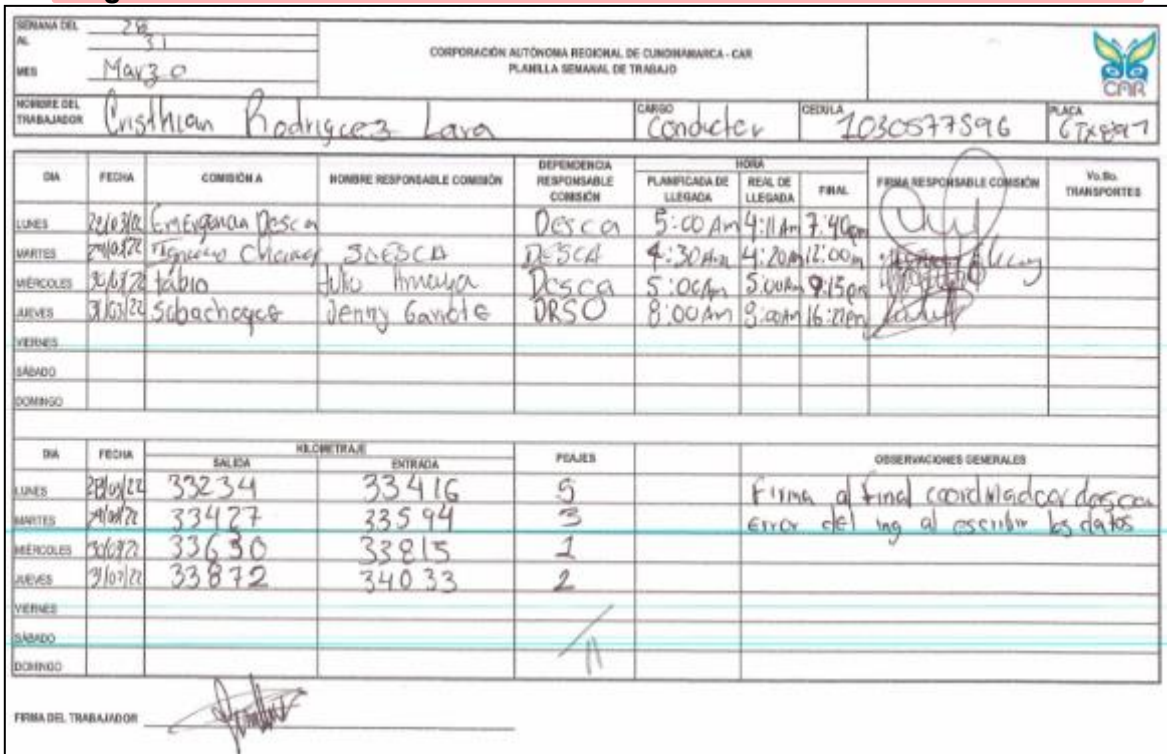 SEMANA DEL 28
AL 31
MES Marzo
CORPORACIÓN AUTÓNOMA REGIONAL DE CUNDINAMARCA - CAR
PLANILLA SEMANAL DE TRABAJO
CAR
NOMBRE DEL TRABAJADOR Cristhian Rodriguez Lara CARGO Conductor CEDULA 1030577596 PLACA
DIA FECHA COMISIÓN A NOMBRE RESPONSABLE COMISIÓN DEPENDENCIA RESPONSABLE COMISIÓN HORA PLANIFICADA DE LLEGADA REAL DE LLEGADA FINAL FIRMA RESPONSABLE COMISIÓN Vo.Bo. TRANSPORTES
LUNES Emergencia Desca Desca 5:00 Am 4:11 Am 7:40pm
MARTES DESCA 4:30Am 4:20am 12:00m
MIÉRCOLES tabio Julio Amaya Desca 5:00Am 5:00Am 9:15pm
JUEVES 31/03/22 Subachoque Jenny DRSO 8:00Am 8:00Am
VIERNES
SÁBADO
DOMINGO
DIA FECHA KILOMETRAJE SALIDA ENTRADA PEAJES OBSERVACIONES GENERALES
LUNES 28/03/22 33234 33416 5 Firma al final coordinador desca
MARTES 33427 33594 3 Error del ing al escribir los datos
MIÉRCOLES 33650 33815 1
JUEVES 33872 34033 2
VIERNES
SÁBADO 11
DOMINGO
FIRMA DEL TRABAJADOR